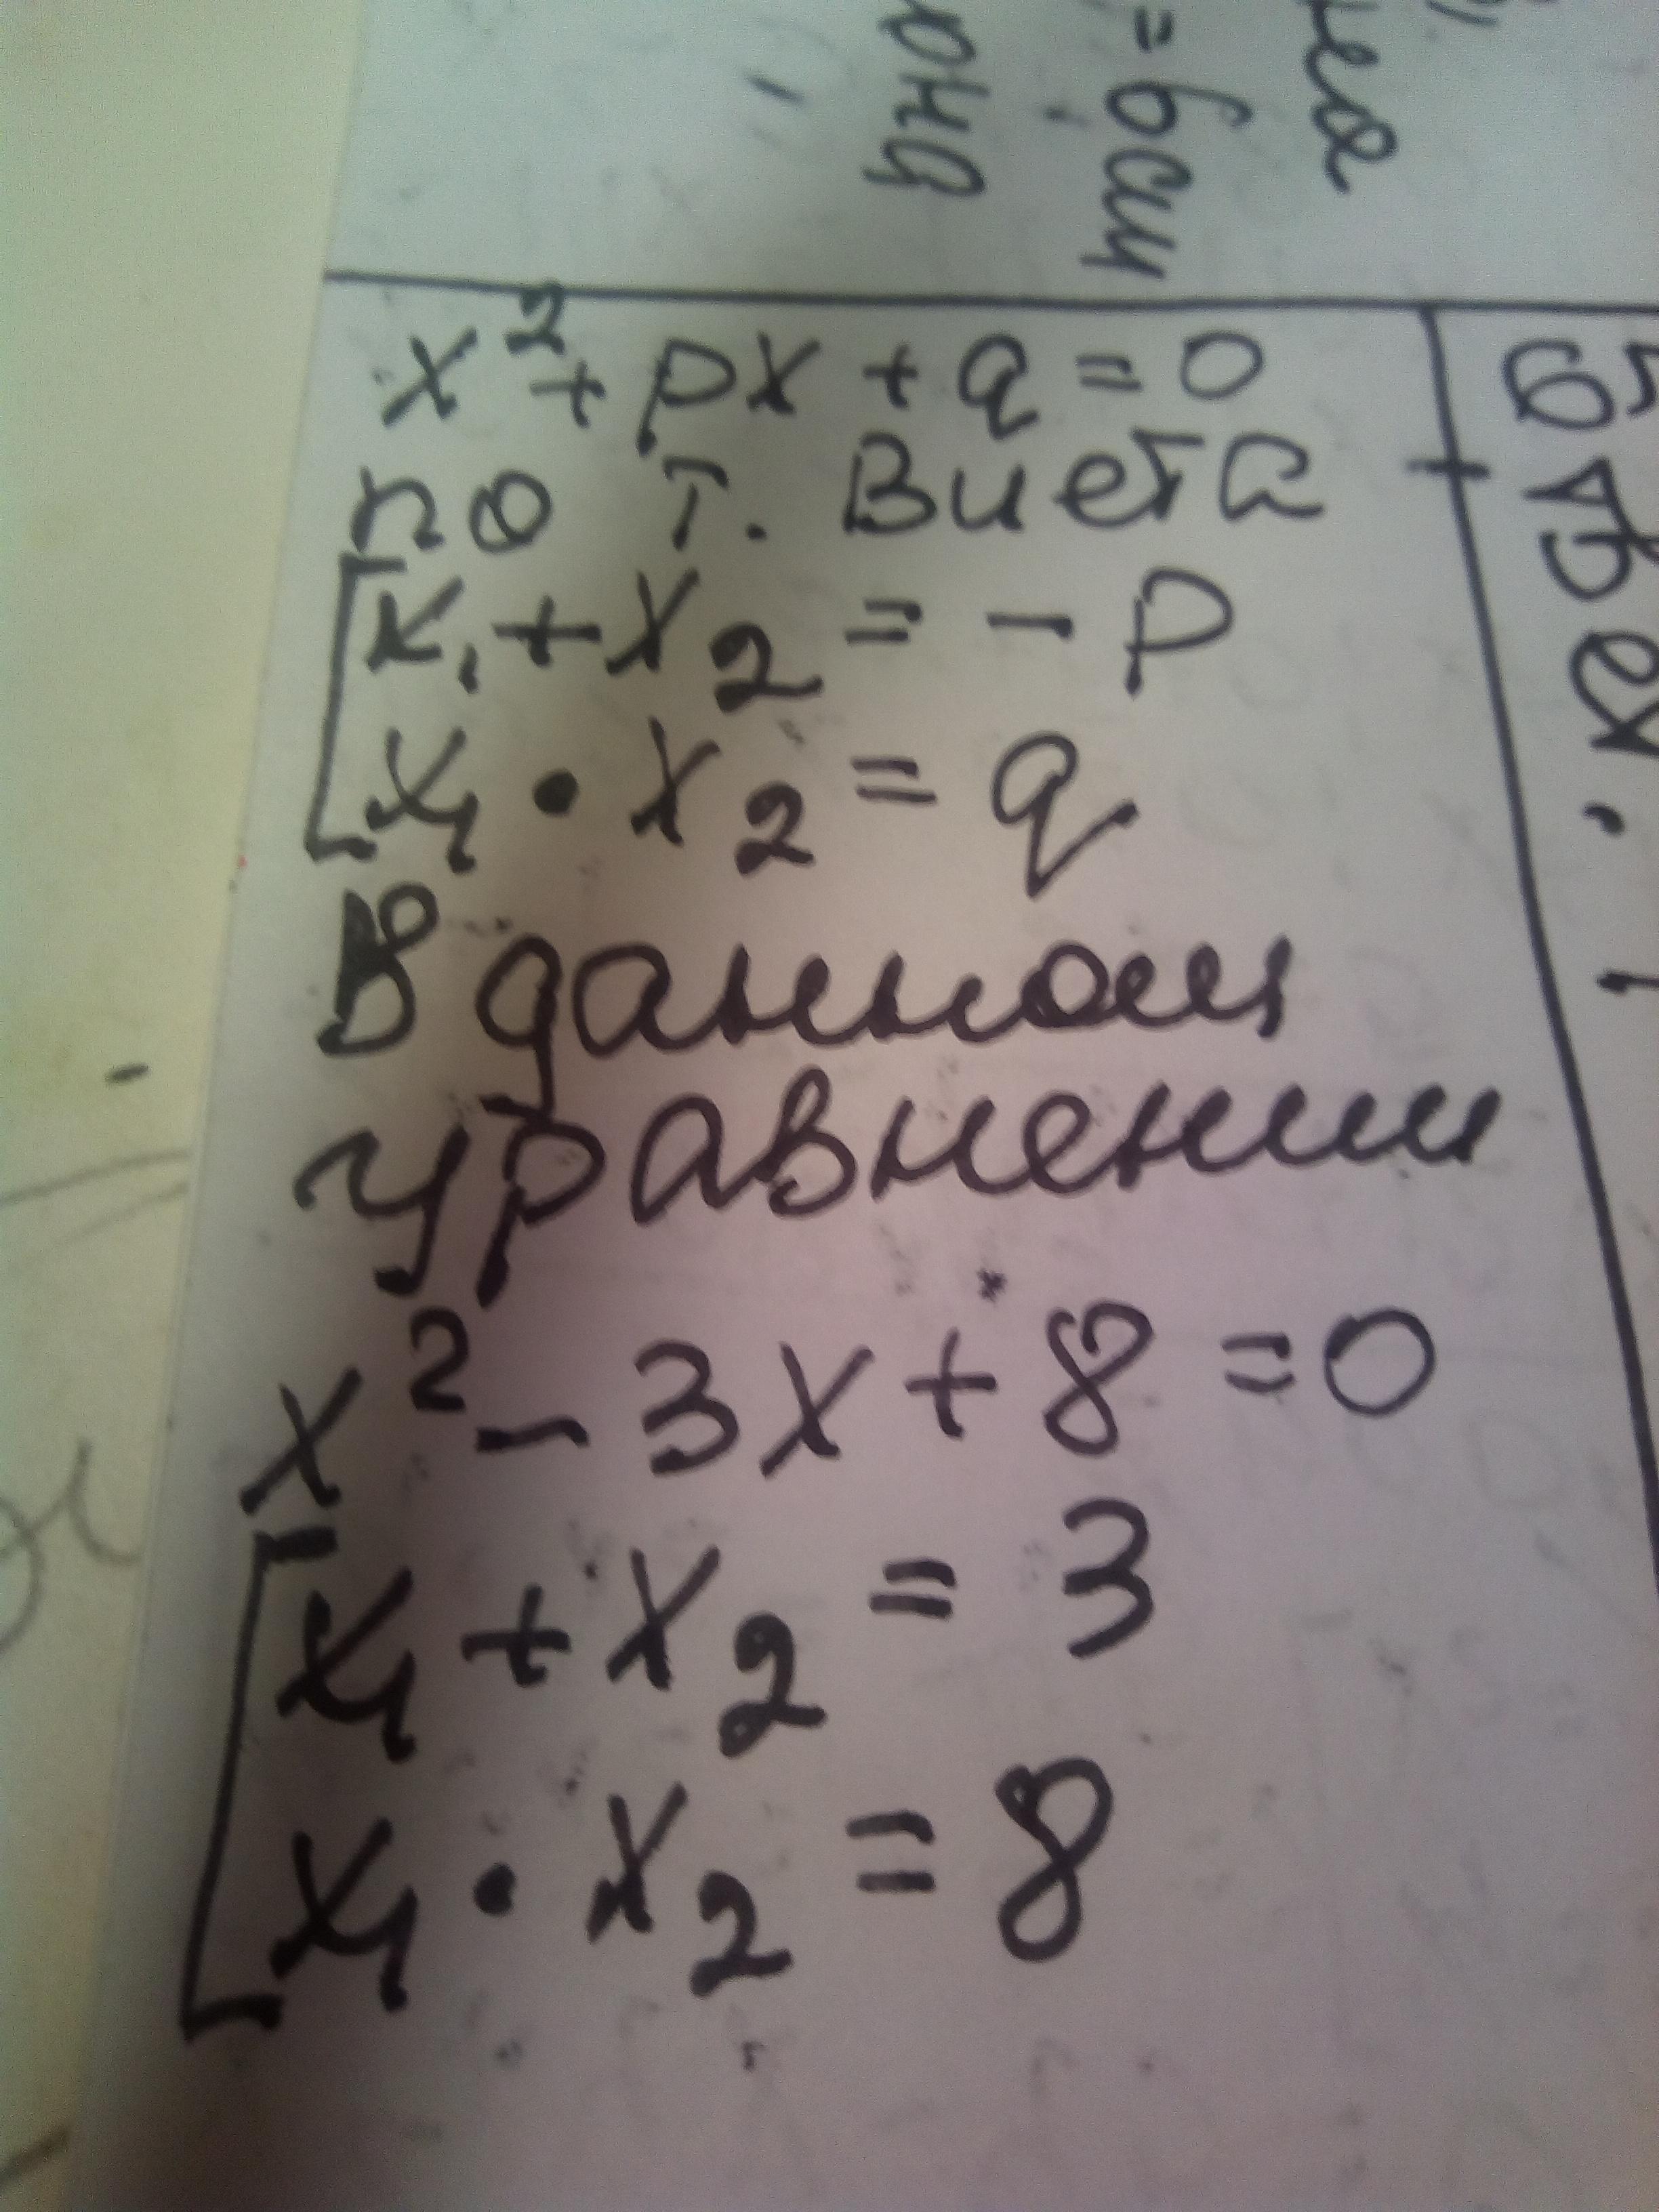 = 6см
x² + px + q = 0
по т. Виета
x₁ + x₂ = - p
x₁ · x₂ = q
В данном
уравнении
x² - 3x + 8 = 0
x₁ + x₂ = 3
x₁ · x₂ = 8